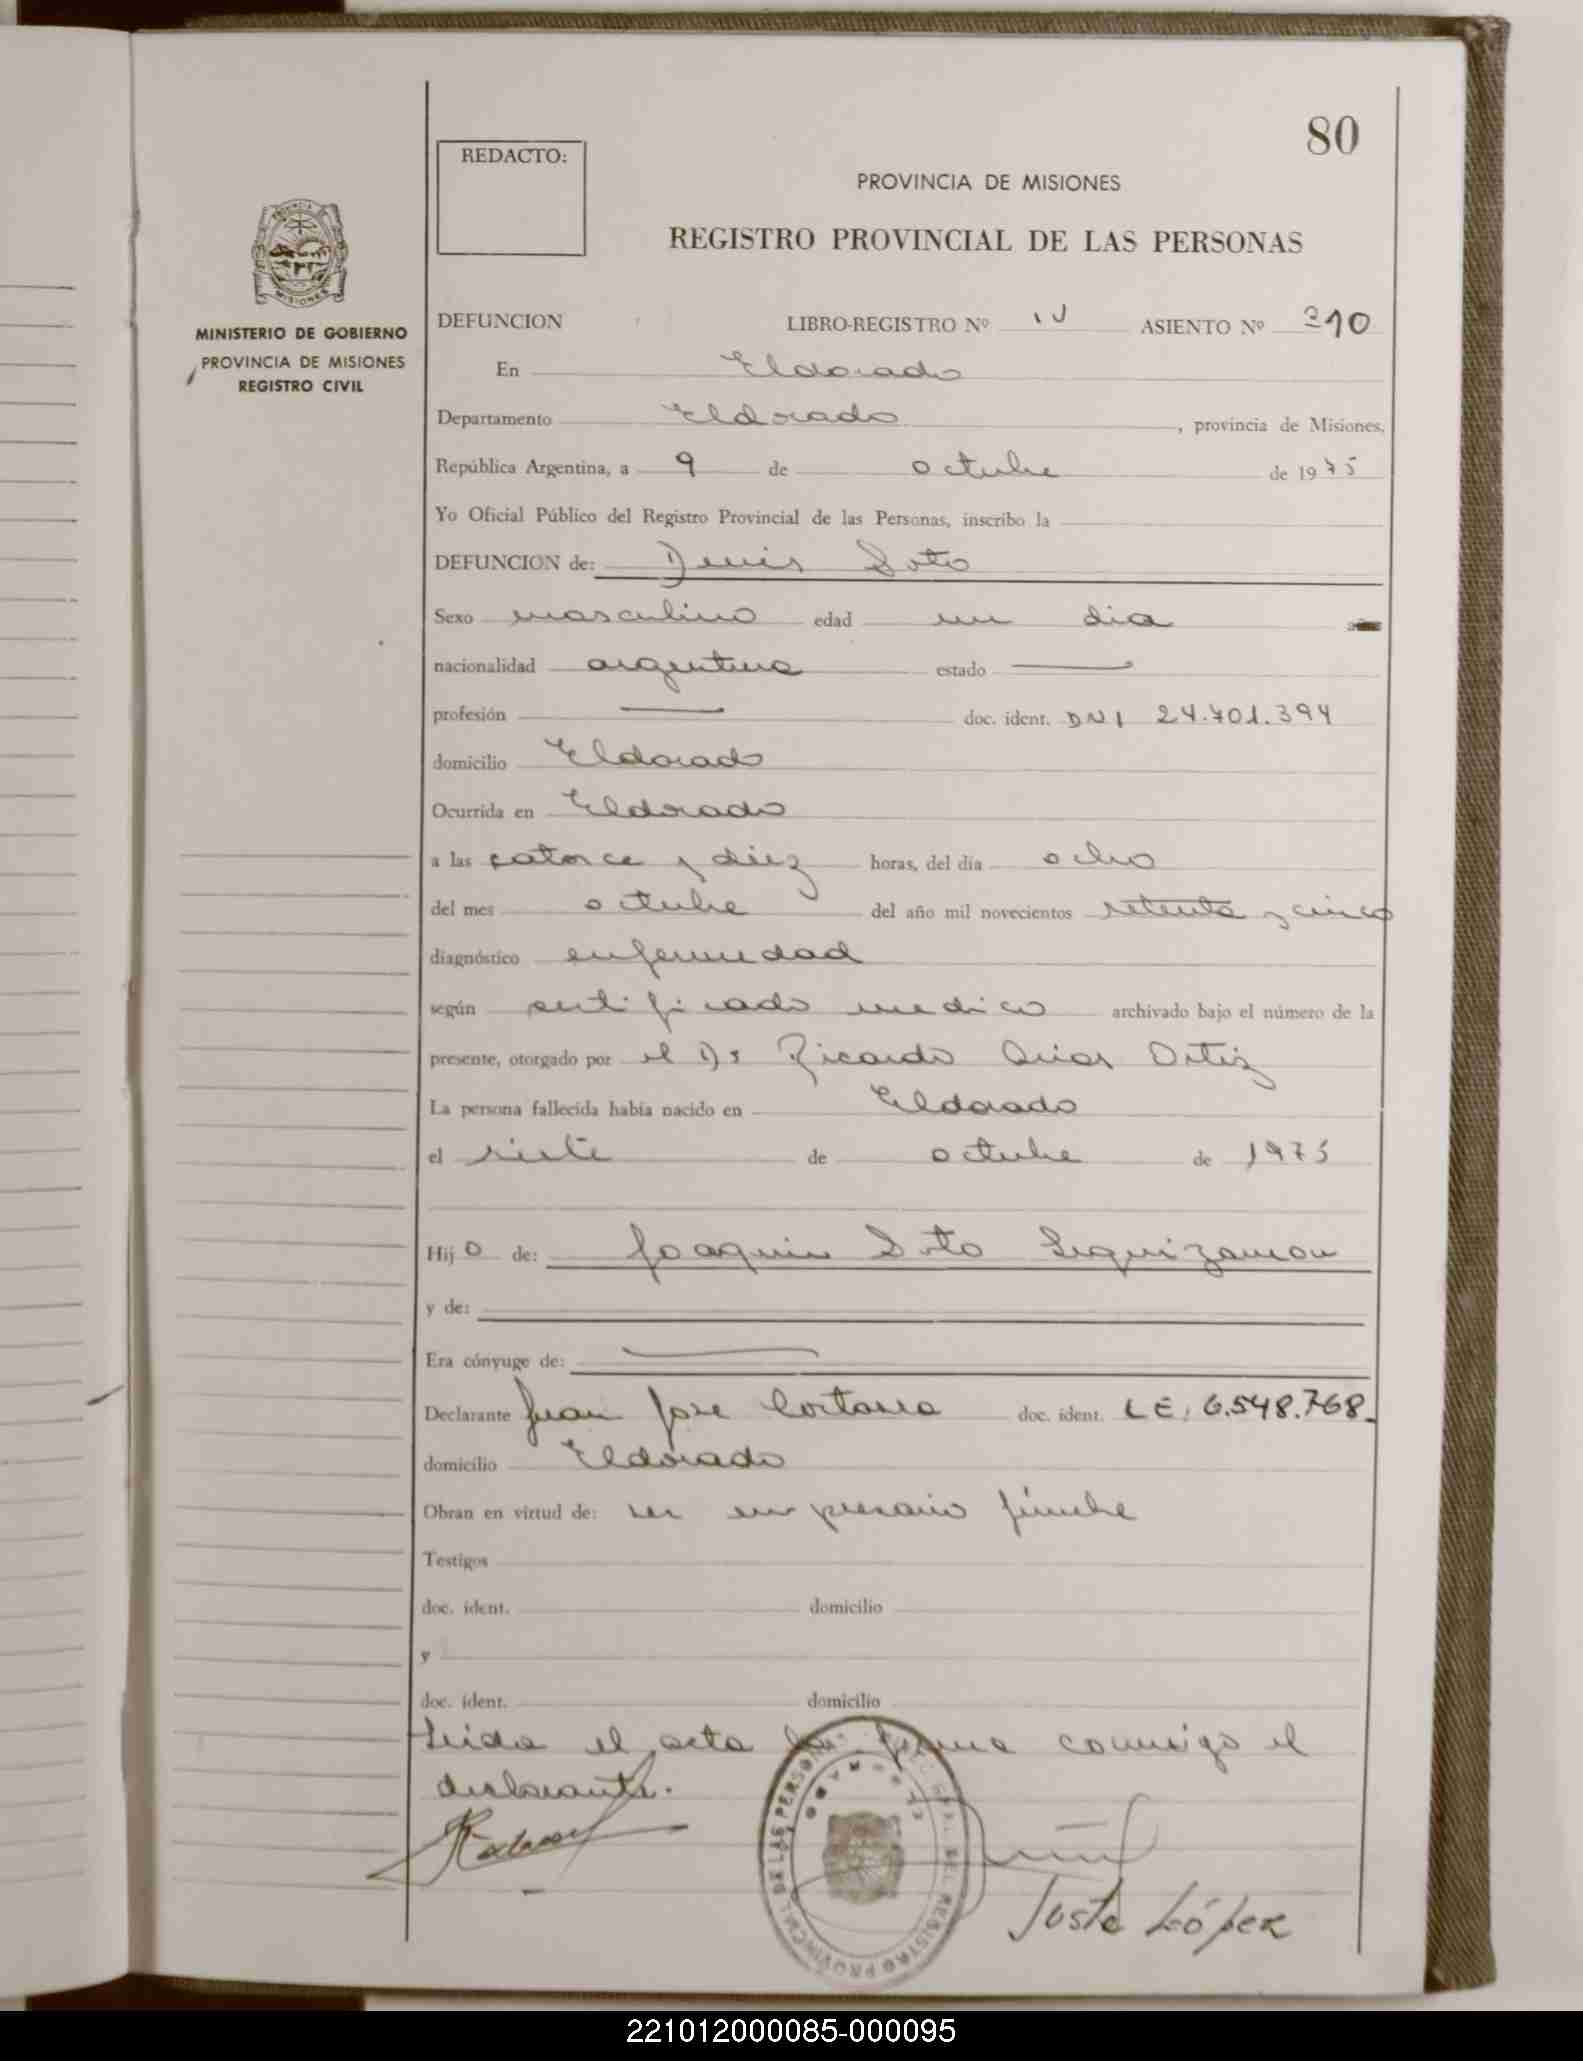 80
REDACTO:
PROVINCIA DE MISIONES
REGISTRO PROVINCIAL DE LAS PERSONAS
MINISTERIO DE GOBIERNO
PROVINCIA DE MISIONES
REGISTRO CIVIL
DEFUNCION LIBRO-REGISTRO Nº ASIENTO Nº 310
En Eldorado
Departamento Eldorado, provincia de Misiones,
República Argentina, a 9 de octubre de 1975
Yo Oficial Público del Registro Provincial de las Personas, inscribo la
DEFUNCION de: Denis Soto
Sexo masculino edad un dia
nacionalidad argentina estado —
profesión — doc. ident. DNI 24.701.394
domicilio Eldorado
Ocurrida en Eldorado
a las catorce y diez horas, del día ocho
del mes octubre del año mil novecientos setenta y cinco
diagnóstico enfermedad
según certificado medico archivado bajo el número de la
presente, otorgado por el Dr Ricardo Arias Ortiz
La persona fallecida había nacido en Eldorado
el siete de octubre de 1975
Hijo de: Joaquin Soto Leguizamon
y de:
Era cónyuge de: —
Declarante Juan Jose doc. ident. LE. 6.548.768
domicilio Eldorado
Obran en virtud de: ser empresario fúnebre
Testigos
doc. ident. domicilio
y
doc. ident. domicilio
Leida el acta la firma conmigo el
declarante.
Justo López
221012000085-000095